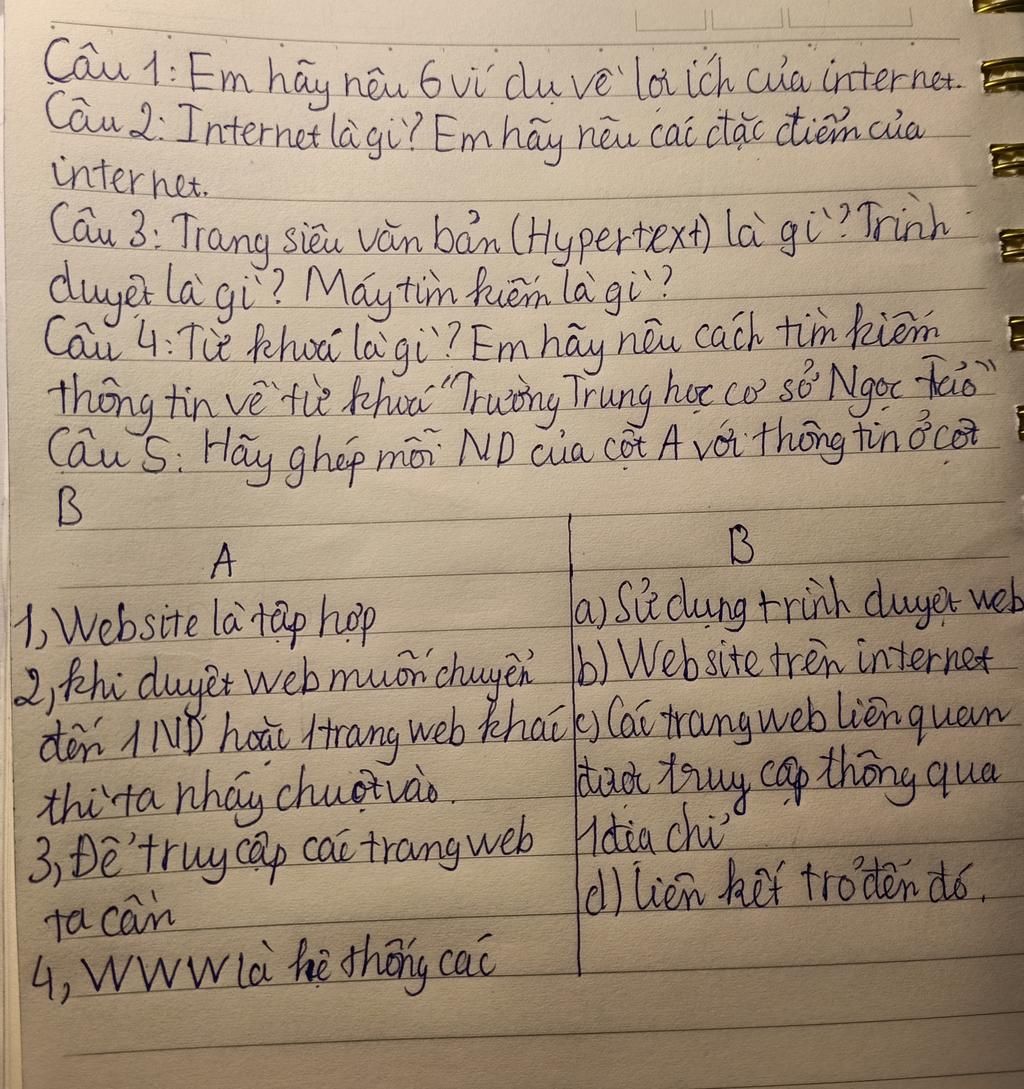 Câu 1: Em hãy nêu 6 ví dụ về lợi ích của internet.
Câu 2: Internet là gì? Em hãy nêu các đặc điểm của
internet.
Câu 3: Trang siêu văn bản (Hypertext) là gì? Trình
duyệt là gì? Máy tìm kiếm là gì?
Câu 4: Từ khoá là gì? Em hãy nêu cách tìm kiếm
thông tin về từ khoá "Trường Trung học cơ sở Ngọc Tảo"
Câu 5: Hãy ghép mỗi ND của cột A với thông tin ở cột
B
A
1, Website là tập hợp
2, khi duyệt web muốn chuyển
đến 1 ND hoặc 1 trang web khác
thì ta nháy chuột vào.
3, Để truy cập các trang web
ta cần
4, WWW là hệ thống các
B
a) Sử dụng trình duyệt web
b) Website trên internet
c) Các trang web liên quan
được truy cập thông qua
1 địa chỉ
d) liên kết trỏ đến đó.